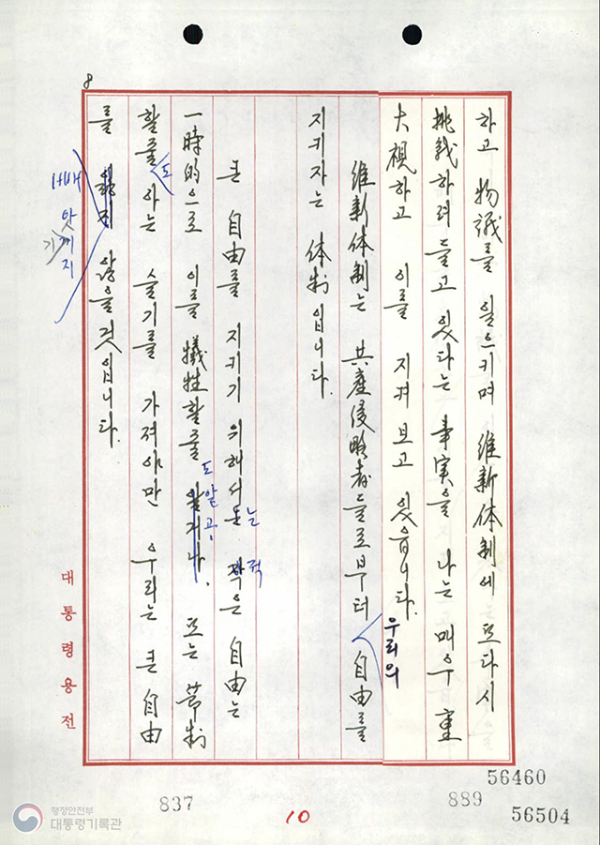 8
하고 物議를 일으키며 維新体制에 또다시
挑戰하려 들고 있다는 事実을 나는 매우 重
大視하고 이를 지켜 보고 있읍니다.
우리의
維新体制는 共産侵略者들로부터 自由를
지키자는 体制입니다.
큰 自由를 지키기 위해서는 작은 自由는
는 적
一時的으로 이를 犧牲할줄 알거나, 또는 節制
도 알고,
할줄 아는 슬기를 가져야만 우리는 큰 自由
도
를 잃지 않을 것입니다.
빼앗기지
대통령용전
56460
837
10
889
56504
행정안전부
대통령기록관